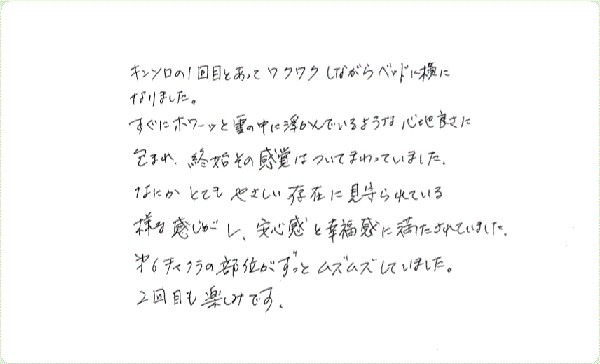 キンソロの1回目とあってワクワクしながらベッドに横に
なりました。
すぐにホワーッと雲の中に浮かんでいるような心地良さに
包まれ、終始その感覚はついてまわっていました。
なにかとてもやさしい存在に見守られている
様な感じがし、安心感と幸福感に満たされていました。
第6チャクラの部位がずっとムズムズしていました。
2回目も楽しみです。